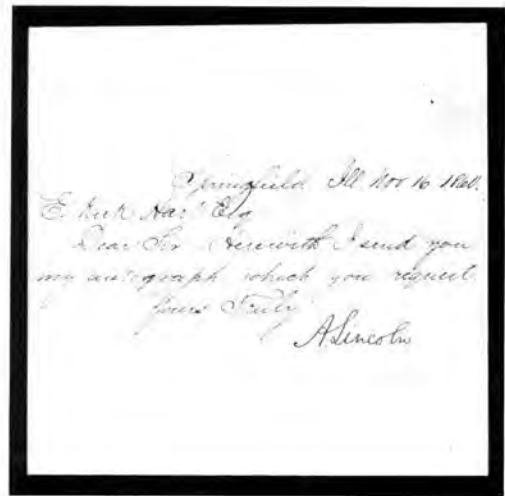 Springfield, Ill Nov 16 1860.
E. Esq
Dear Sir Herewith I send you
my autograph which you request.
Yours Truly
A Lincoln